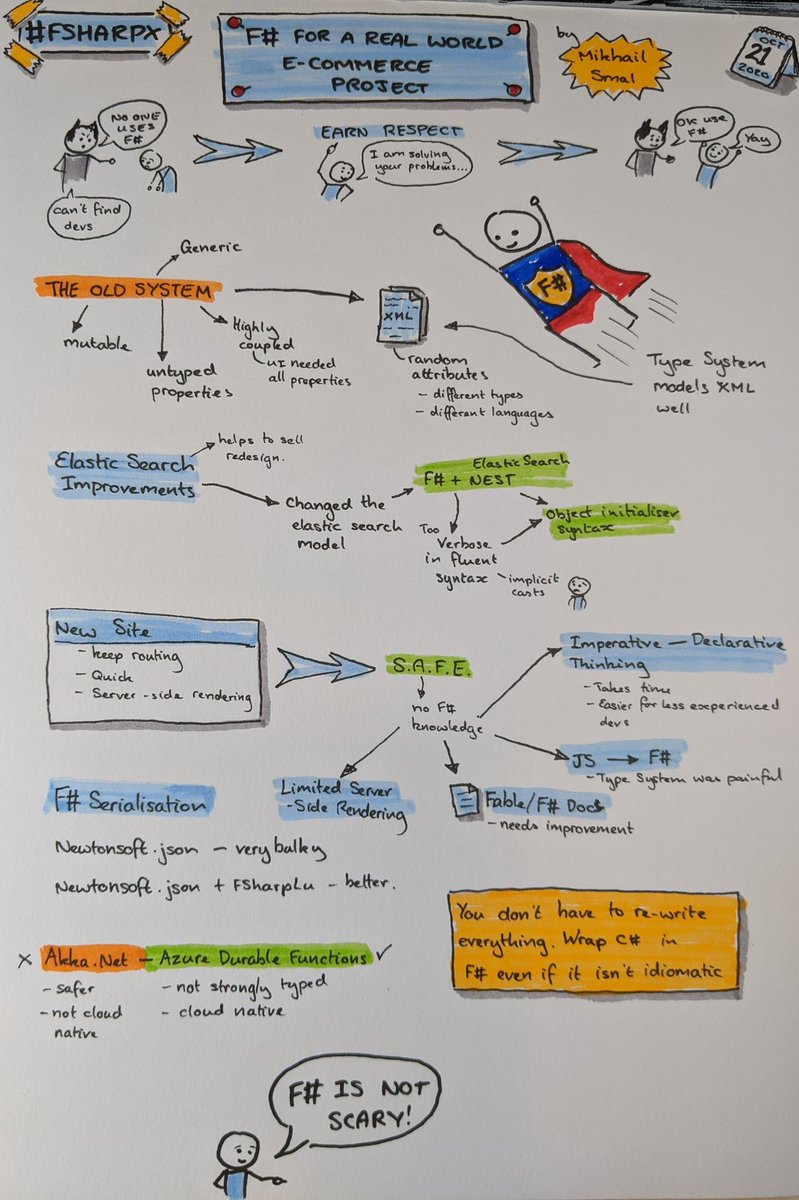 #FSHARPX
F# FOR A REAL WORLD
E-COMMERCE
PROJECT
by
Mikhail
Smal
OCT
21
2020
NO ONE
USES
F#
can't find
devs
EARN RESPECT
I am solving
your problems...
OK use
F#
Yay
THE OLD SYSTEM
Generic
mutable
untyped
properties
Highly
coupled
UI needed
all properties
XML
random
attributes
- different types
- different languages
F#
Type System
models XML
well
Elastic Search
Improvements
helps to sell
redesign.
Changed the
elastic search
model
Elastic Search
F# + NEST
Too
Verbose
in fluent
syntax
implicit
casts
Object initialiser
syntax
New Site
- keep routing
- Quick
- Server-side rendering
S.A.F.E.
no F#
knowledge
Imperative — Declarative
Thinking
- Takes time
- Easier for less experienced
devs
JS → F#
- Type System was painful
Limited Server
-Side Rendering
Fable/F# Docs
- needs improvement
F# Serialisation
Newtonsoft.json - very bulky
Newtonsoft.json + FSharpLu - better.
You don't have to re-write
everything. Wrap C# in
F# even if it isn't idiomatic
x Akka.Net - Azure Durable Functions ✓
- safer
- not cloud
native
- not strongly typed
- cloud native
F# IS NOT
SCARY!